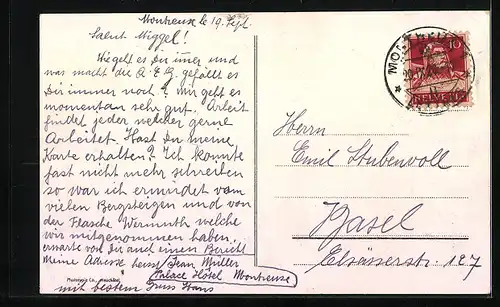 Montreux le 19 Sept.
Salut Miggel!
Wie geht es Dir immer und
was macht die A.E.G. gefällt es
Dir immer noch? Mir geht es
momentan sehr gut. Arbeit
findet jeder welcher gerne
Arbeitet. Hast Du meine
Karte erhalten? Ich konnte
fast nicht mehr schreiben
so war ich ermüdet vom
vielen Bergsteigen und von
der Flasche Wermuth welche
wir mitgenommen haben.
erwarte von Dir auch einen Bericht
Meine Adresse heisst Jean Müller
Palace Hôtel Montreux
mit bestem Gruss Hans
10
HELVETIA
Herrn
Emil Stubenvoll
Basel
Elsässerstr. 127